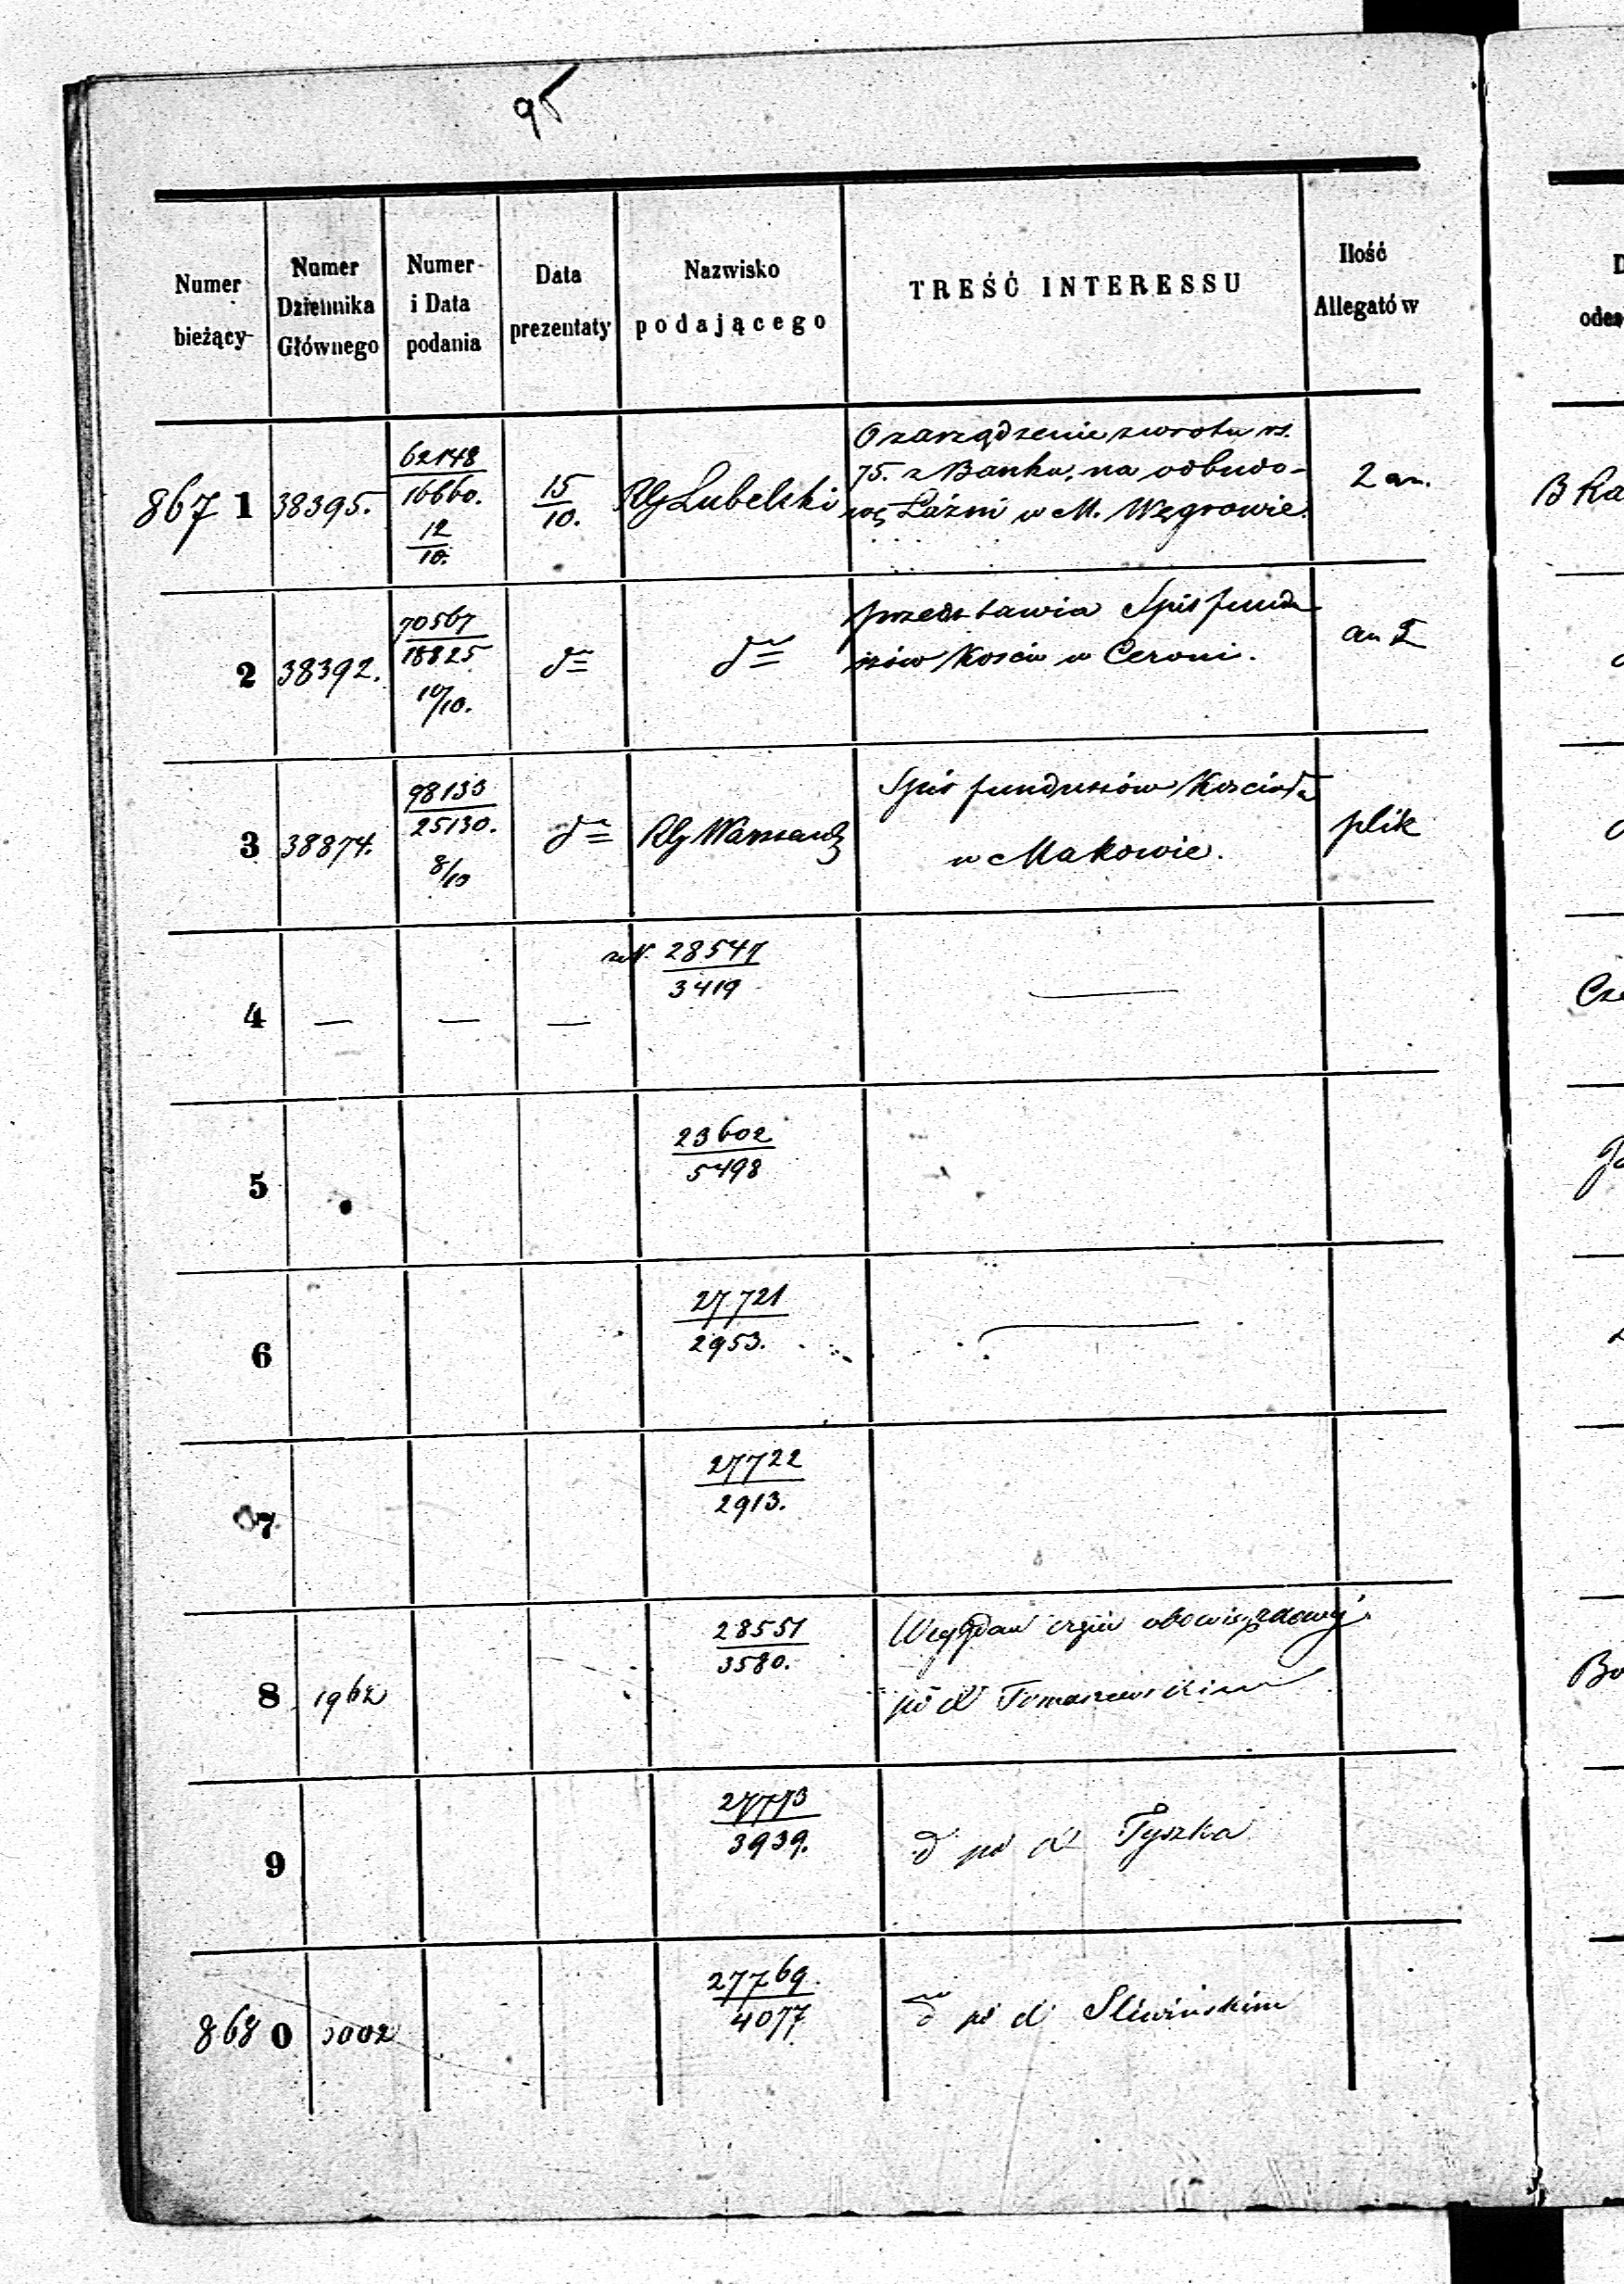 95
Numer bieżący
Numer Dziennika Głównego
Numer i Data podania
Data prezentaty
Nazwisko podającego
TREŚĆ INTERESSU
Ilość Allegatów
867 1
38395.
62148
16660.
12
10.
15
10.
Rlg Lubelski
O zarządzenie zwrotu rs.
75. z Banku, na odbudo-
wę Łaźni w M. Węgrowie.
2 an.
2
38392.
70567
18825
10/10.
d
d
przedstawia Spis fundu
szów Kościo w Ceroni.
an 2
3
38874.
98133
25130.
8/10
d
Rlg Warszawski
Spis funduszów Kościoła
w Makowie.
plik
4
—
—
—
28547
3419
5
23602
5498
6
27721
2953.
7
27722
2913.
8
1962
28551
3580.
Tomaszewskim
9
27773
3939.
d po Tyszka
868 0
3002
27769.
4077
d po d Sliwińskim